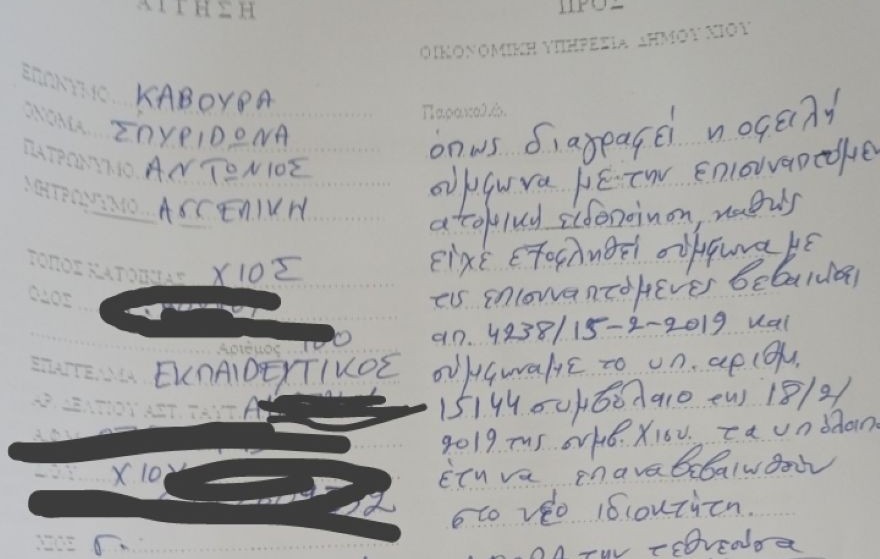 ΑΙΤΗΣΗ
ΕΠΩΝΥΜΟ ΚΑΒΟΥΡΑ
ΟΝΟΜΑ ΣΠΥΡΙΔΩΝΑ
ΠΑΤΡΩΝΥΜΟ ΑΝΤΩΝΙΟΣ
ΜΗΤΡΩΝΥΜΟ ΑΓΓΕΛΙΚΗ
ΤΟΠΟΣ ΚΑΤΟΙΚΙΑΣ ΧΙΟΣ
ΟΔΟΣ
Αριθμός 100
ΕΠΑΓΓΕΛΜΑ ΕΚΠΑΙΔΕΥΤΙΚΟΣ
ΑΡ. ΔΕΛΤΙΟΥ ΑΣΤ. ΤΑΥΤ. Α
ΧΙΟΥ
ΠΡΟΣ
ΟΙΚΟΝΟΜΙΚΗ ΥΠΗΡΕΣΙΑ ΔΗΜΟΥ ΧΙΟΥ
Παρακαλώ
όπως διαγραφεί η οφειλή
σύμφωνα με την επισυναπτόμεν
ατομική ειδοποίηση, καθώς
είχε εξοφληθεί σύμφωνα με
τις επισυναπτόμενες βεβαιώσεις
απ. 4238/15-2-2019 και
σύμφωνα με το υπ. αριθμ.
15144 συμβόλαιο της 18/2/
2019 της συμβ. Χιου. τα υπόλοιπα
έτη να επαναβεβαιωθούν
στο νέο ιδιοκτήτη.
την τεθνεώσα